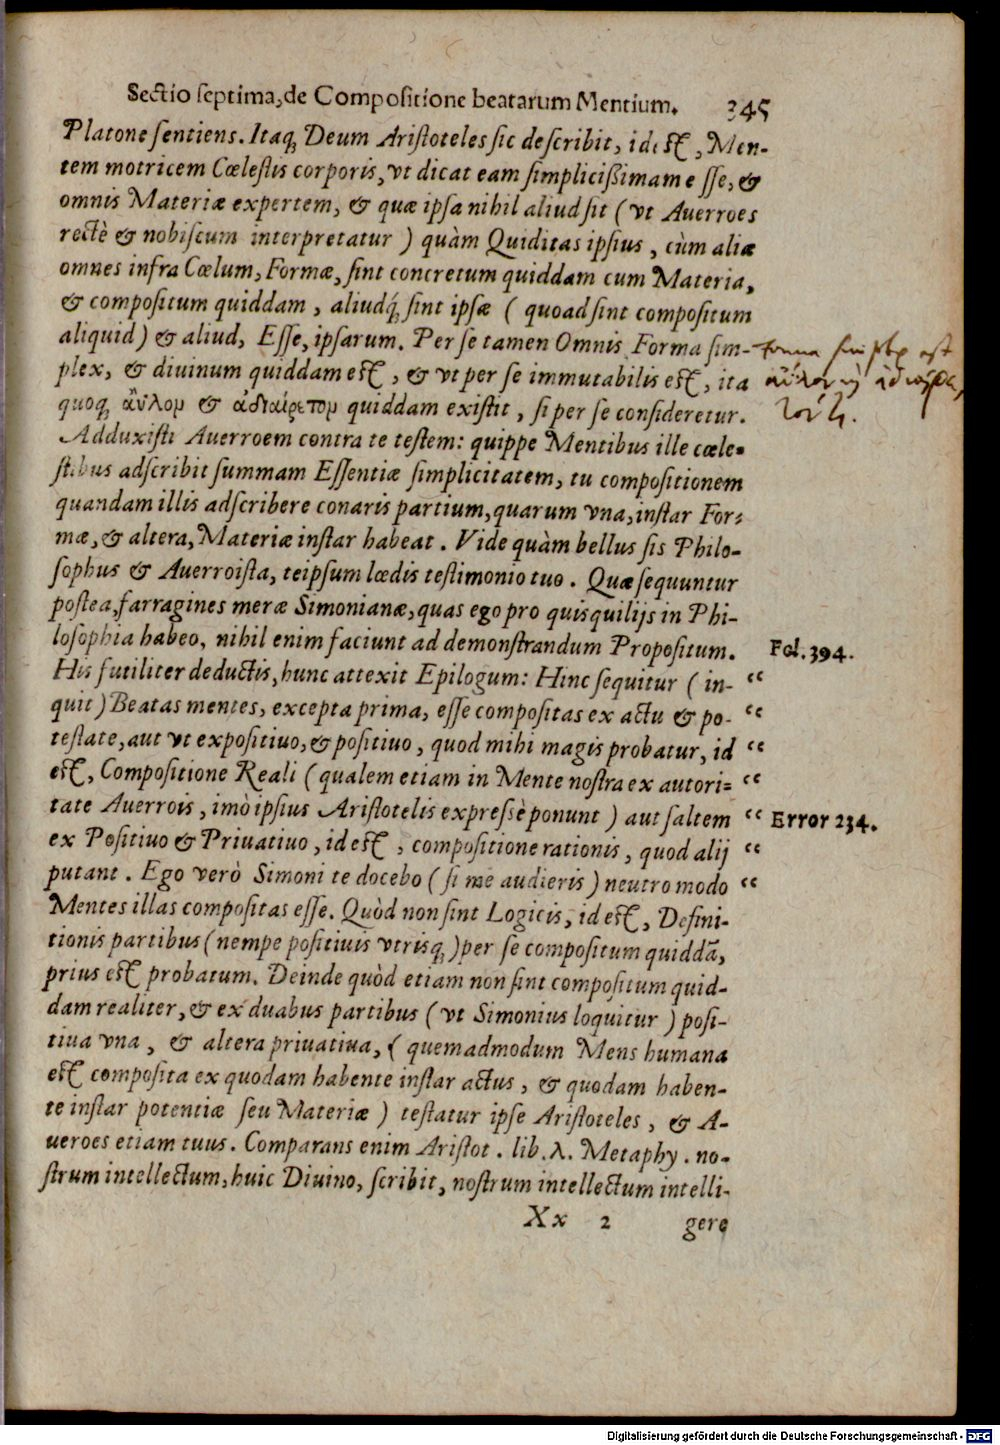 Sectio septima, de Compositione beatarum Mentium. 345
Platone sentiens. Itaq; Deum Aristoteles sic describit, id est, Men-
tem motricem Cœlestis corporis, vt dicat eam simplicißimam esse, &
omnis Materiæ expertem, & quæ ipsa nihil aliud sit ( vt Auerroes
rectè & nobiscum interpretatur ) quàm Quiditas ipsius, cùm aliæ
omnes infra Cœlum, Formæ, sint concretum quiddam cum Materia,
& compositum quiddam, aliudq́; sint ipsæ ( quoad sint compositum
aliquid) & aliud, Esse, ipsarum. Per se tamen Omnis Forma sim-
plex, & diuinum quiddam est, & vt per se immutabilis est, ita
quoq; ἄϋλομ & ἀδιαίρετομ quiddam existit, si per se consideretur.
Adduxisti Auerroem contra te testem: quippe Mentibus ille cœle-
stibus adscribit summam Essentiæ simplicitatem, tu compositionem
quandam illis adscribere conaris partium, quarum vna, instar For-
mæ, & altera, Materiæ instar habeat. Vide quàm bellus sis Philo-
sophus & Auerroista, teipsum lædis testimonio tuo. Quæ sequuntur
postea, farragines meræ Simonianæ, quas ego pro quisquilijs in Phi-
losophia habeo, nihil enim faciunt ad demonstrandum Propositum.
Fol. 394.
His futiliter deductis, hunc attexit Epilogum: Hinc sequitur ( in- “
quit ) Beatas mentes, excepta prima, esse compositas ex actu & po- “
testate, aut vt expositiuo, & positiuo, quod mihi magis probatur, id “
est, Compositione Reali ( qualem etiam in Mente nostra ex autori- “
tate Auerrois, imò ipsius Aristotelis expressè ponunt ) aut saltem “
Error 234.
ex Positiuo & Priuatiuo, id est, compositione rationis, quod alij “
putant. Ego verò Simoni te docebo ( si me audieris ) neutro modo “
Mentes illas compositas esse. Quòd non sint Logicis, id est, Defini-
tionis partibus ( nempe positiuis vtrisq; ) per se compositum quiddā,
prius est probatum. Deinde quòd etiam non sint compositum quid-
dam realiter, & ex duabus partibus ( vt Simonius loquitur ) posi-
tiua vna, & altera priuatiua, ( quemadmodum Mens humana
est composita ex quodam habente instar actus, & quodam haben-
te instar potentiæ seu Materiæ ) testatur ipse Aristoteles, & A-
ueroes etiam tuus. Comparans enim Aristot. lib. λ. Metaphy. no-
strum intellectum, huic Diuino, scribit, nostrum intellectum intelli-
Xx 2 gere
Digitalisierung gefördert durch die Deutsche Forschungsgemeinschaft - DFG